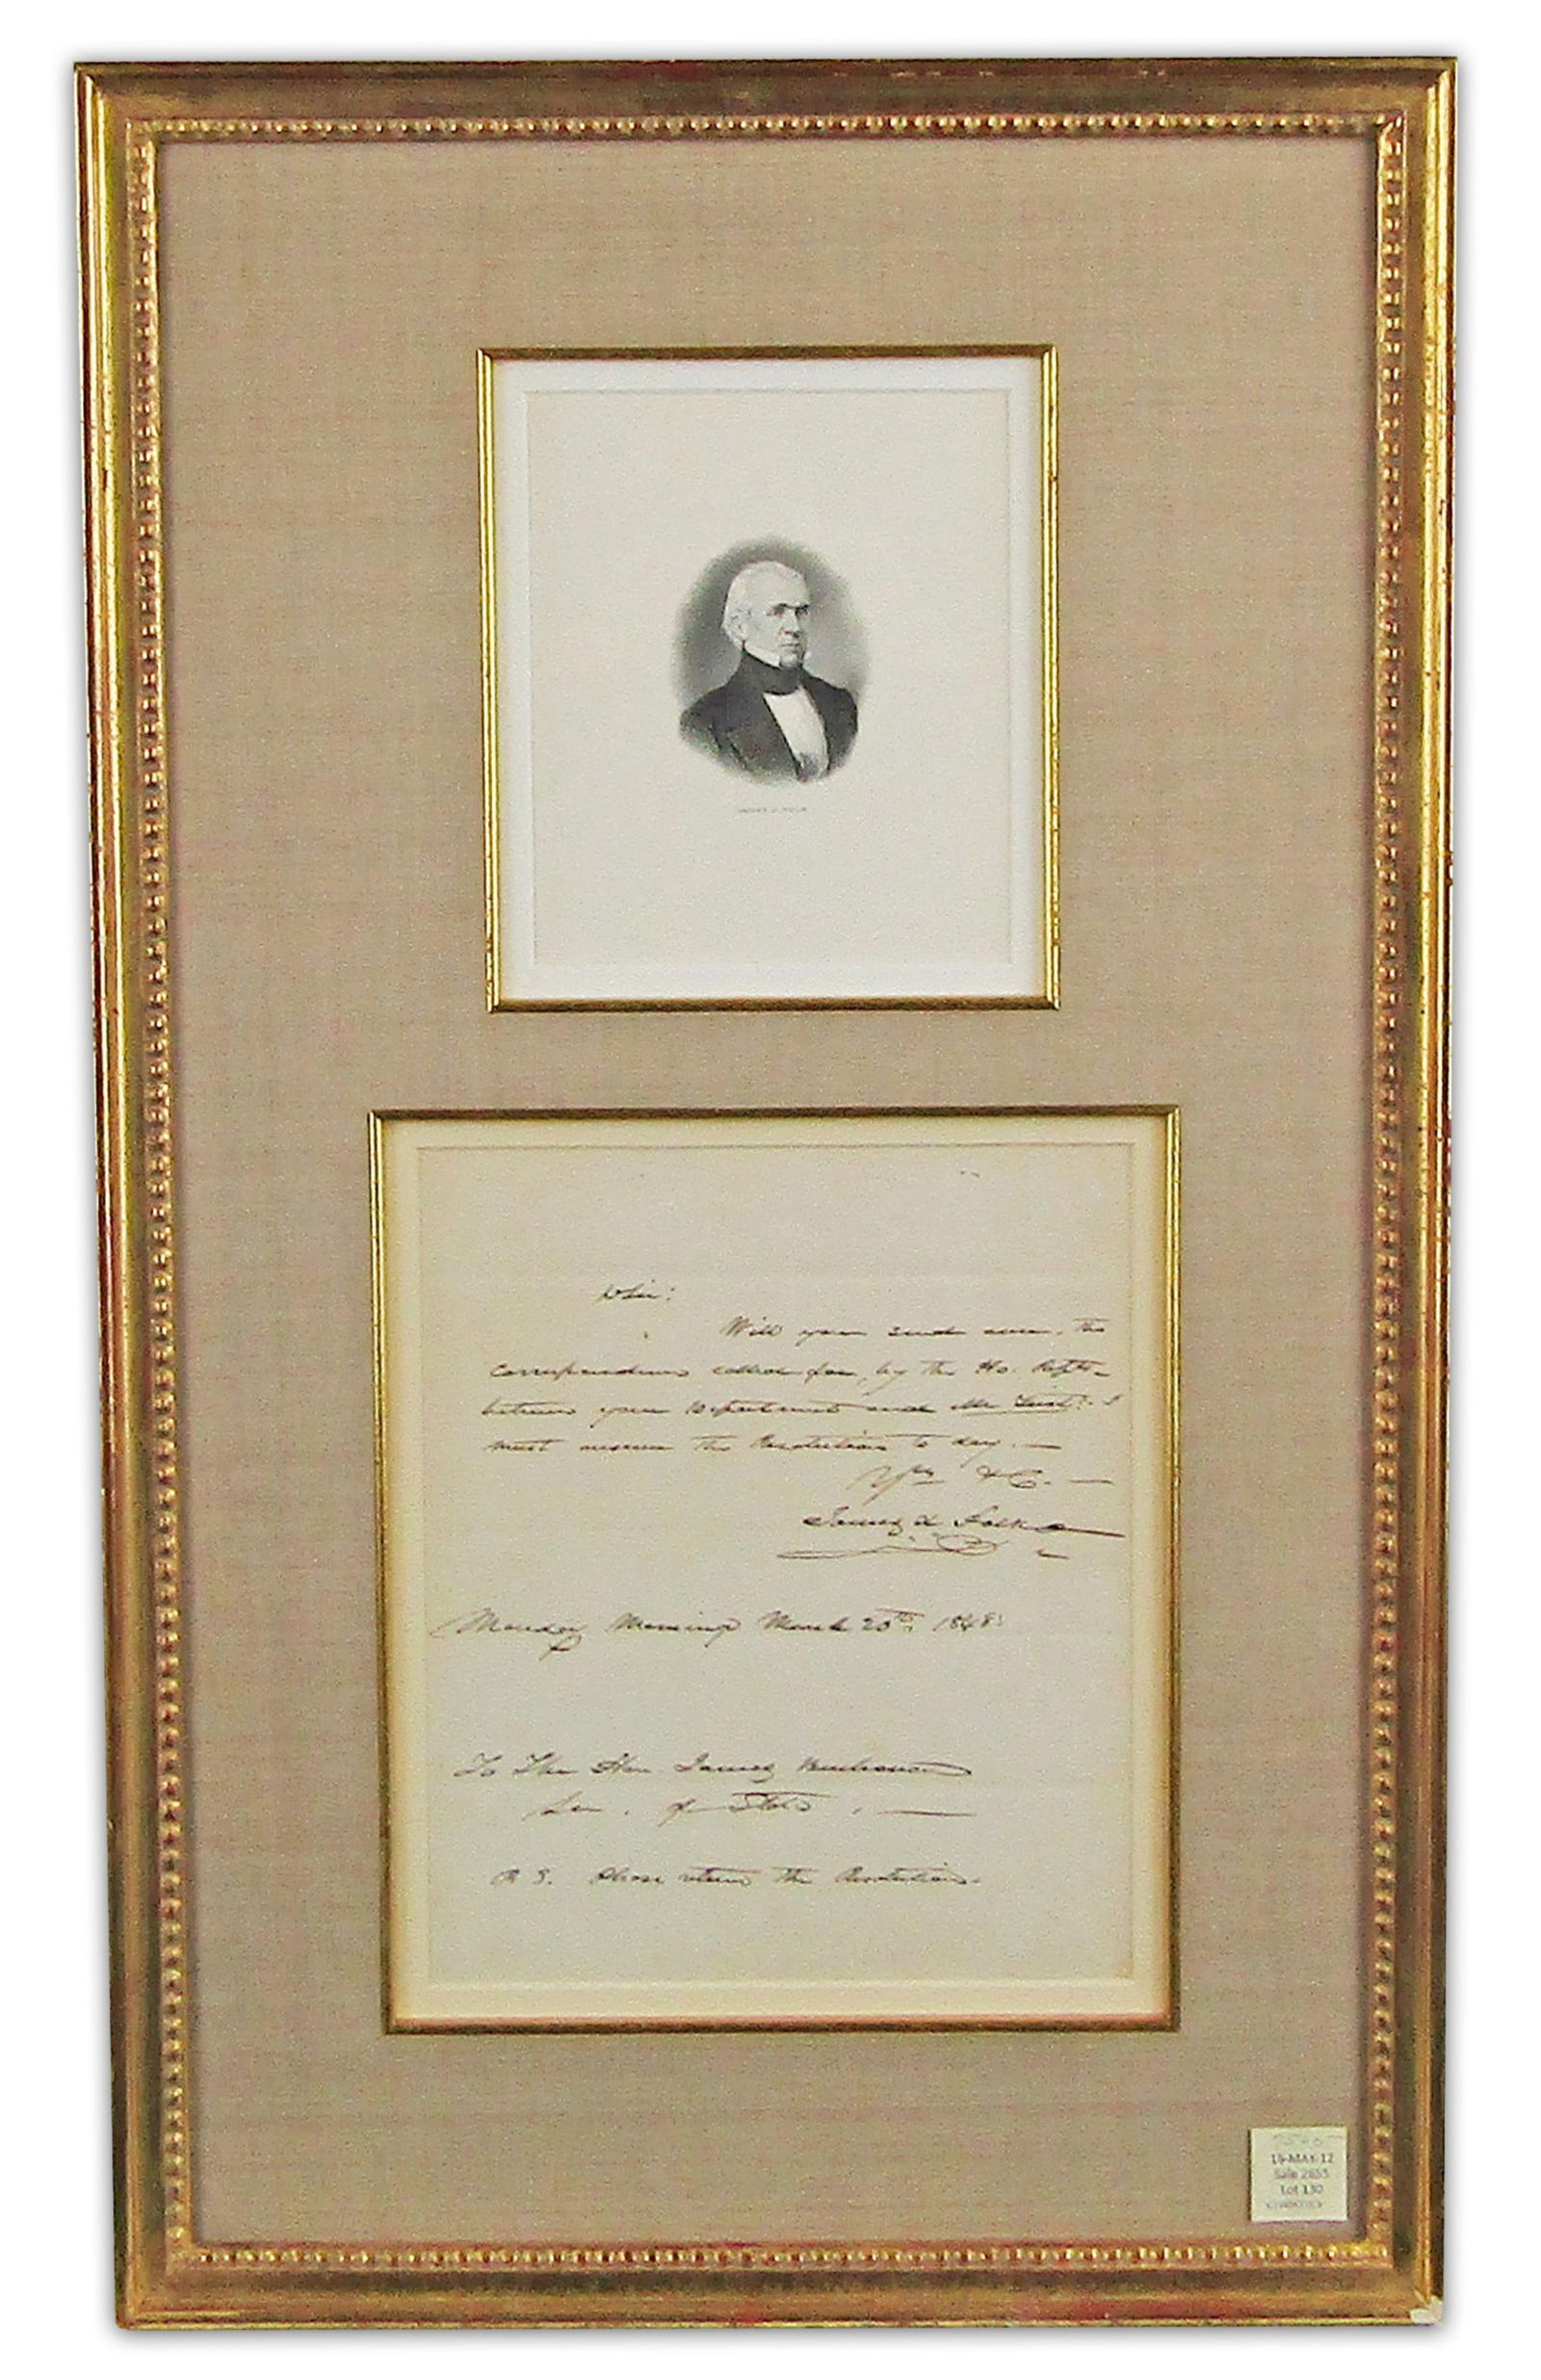 JAMES K. POLK
Sir:
Will you send over, the
correspondence called for, by the Ho. Repts.
between your Department and Mr Trist? I
must answer the Resolution to day. —
Yrs &C. —
James K. Polk
Monday Morning March 20th, 1848:
To The Hon. James Buchanan
Sec. of State. —
P.S. Please return the Resolution.
-MAY-12
Sale 2655
Lot 130
CHRISTIE'S